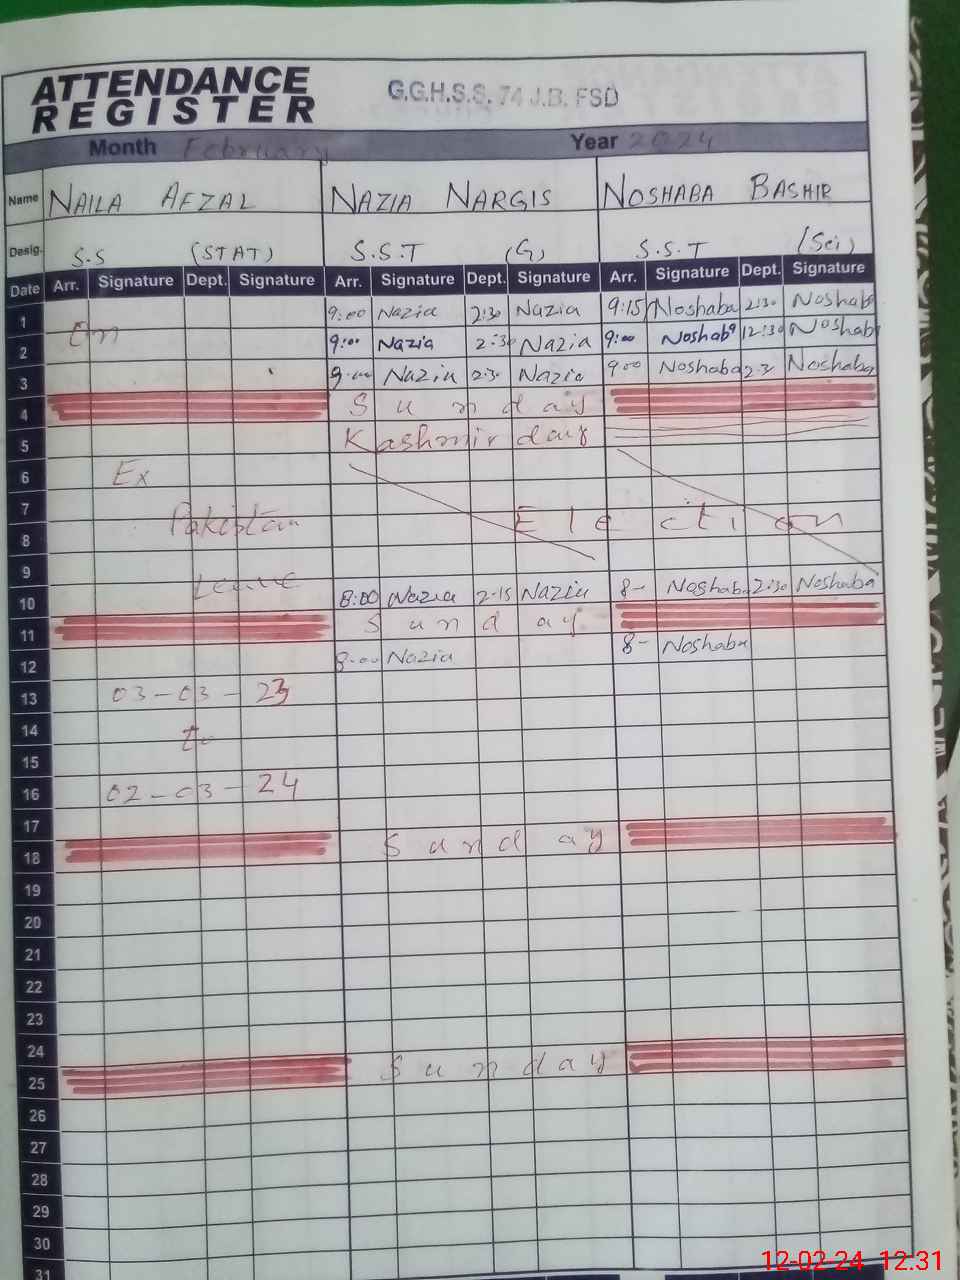 ATTENDANCE REGISTER G.G.H.S.S. 74 J.B. FSD
Month February Year 2024
Name NAILA AFZAL NAZIA NARGIS NOSHABA BASHIR
Desig. S.S (STAT) S.S.T (G) S.S.T (Sci)
Date Arr. Signature Dept. Signature Arr. Signature Dept. Signature Arr. Signature Dept. Signature
1 9:00 Nazia 2:30 Nazia 9:15 Noshaba 2:30 Noshaba
2 On 9:00 Nazia 2:30 Nazia 9:00 Noshaba 12:30 Noshaba
3 9:00 Nazia 2:30 Nazia 9:00 Noshaba 2:3 Noshaba
4 Sunday
5 Kashmir day
6 Ex
7
8 Pakistan Election
9
10 Leave 8:00 Nazia 2:15 Nazia 8- Noshaba 2:30 Noshaba
11 Sunday
12 8:00 Nazia 8- Noshaba
13 03-03-23
14 to
15
16 02-03-24
17
18 Sunday
19
20
21
22
23
24
25 Sunday
26
27
28
29
30
31
12-02-24 12:31